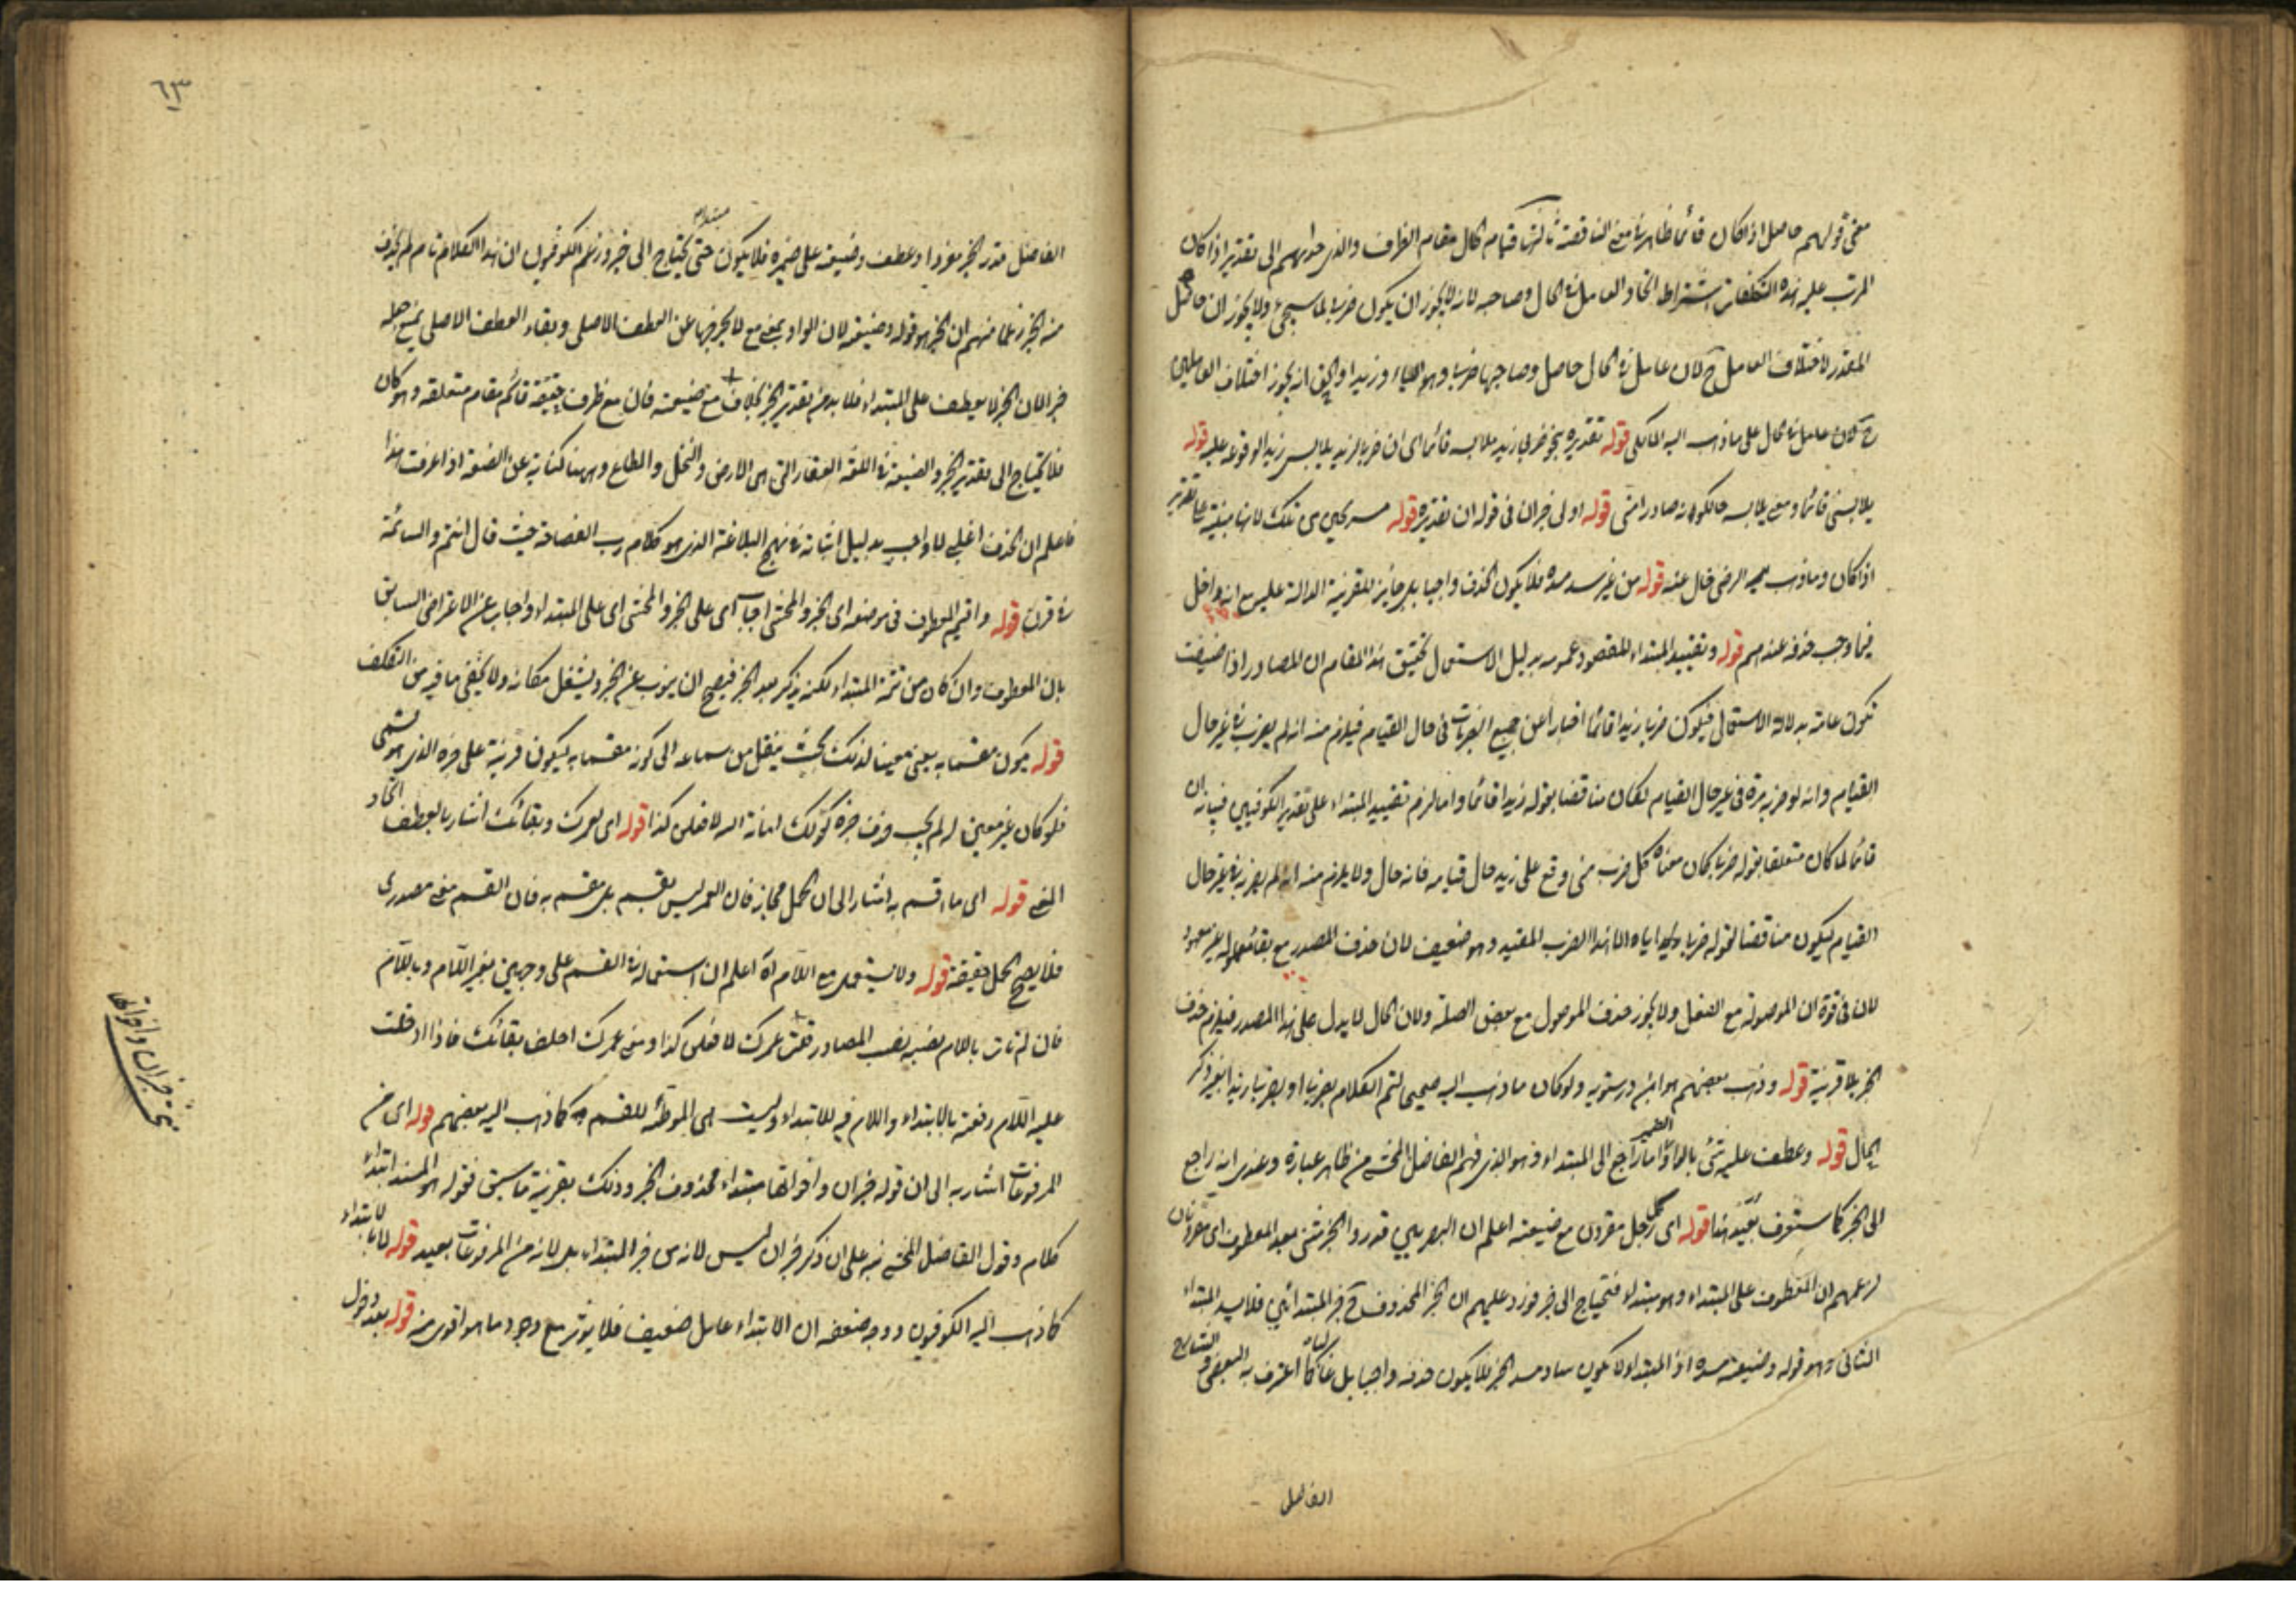 معنى قولهم حاصل اذا كان قائما ظاهر في معنى الناقصة ثالثها قيام الحال مقام الظرف والذي حداهم الى تقدير اذا كان
المرتب عليه هذه التكلفات اشتراط اتحاد العامل في الحال وصاحبه لانه لا يجوز ان يكون ضربا لما سيجيء ولا يجوز ان حاصل
المقدر لاختلاف العامل ح لان عامل في الحال حاصل وصاحبها ضربا وهو الياء وزيدا والحق انه يجوز اختلاف العاملين
ح لان عامل الحال على ما ذهب اليه المالكي قوله تقديره نحو ضربي زيد ملابسه قائما اى ان ضربا لزيد يلابس زيدا لوقوعه عليه قوله
يلابسنى قائما ومعنى يلابسه حالكونه صادرا منى قوله اولى خبر ان في قوله ان تقديره قوله من تلك لانها مبنية على تقدير
اذا كان وما ذهب اليه الرضى خال عنه قوله من غير سد مسده فلا يكون الحذف واجبا بل جائز للقرينة الدالة عليه مع انه داخل
فيما وجب حذفه عندهم قوله وتقييد المبتداء المقصود عمومه بدليل الاستعمال تحقيق هذا المقام ان المصادر اذا اضيفت
تكون عامة بدلالة الاستعمال فيكون ضربا زيدا قائما اخبارا عن جميع الضربات في حال القيام فيلزم منه انه لم يضرب في غير حال
القيام وانه لو ضربه مرة في غير حال القيام لكان مناقضا بقوله زيدا قائما واما لزم تقييد المبتداء على تقدير الكوفيين فبيانه ان
قائما لما كان متعلقا بقوله ضربا كان معناه كل ضرب منى وقع على زيد حال قيامه فانه حال ولا يلزم منه انه لم يضربه في غير حال
القيام ليكون مناقضا لقوله ضربا اياه الا هذا الضرب المقيد وهو ضعيف لان حذف المصدر مع بقاء معموله غير معهود
لان في قوة ان الموصولة مع الفعل ولا يجوز حذف الموصول مع بعض الصلة ولان الحال لا يدل على هذا المصدر فيلزم حذف
الخبر بلا قرينة قوله وذهب بعضهم هو ابن درستويه ولو كان ما ذهب اليه صحيحا لتم الكلام بضربا او بضربا زيدا بغير ذكر
الحال قوله وعطف عليه شئ بالواو الضمير اما راجع الى المبتداء وهو الذي فهم الفاضل المحشى من ظاهر عبارة وعندى انه راجع
الى الخبر كما ستعرف بعيد هذا قوله اى كل رجل مقرون مع ضيعته اعلم ان البصريين قدروا الخبر مثنى بعد المعطوف اى مقرونان
لزعمهم ان المعطوف على المبتداء وهو مبتداء فتحتاج الى خبر فورد عليهم ان الخبر المحذوف ح خبر المبتدائين فلا يسد المبتداء
الثانى وهو قوله وضيعته مسده اذ المبتداء لا يكون سادا مسد الخبر فلا يكون حذفه واجبا بل غالبا كما اعترف به البعض والشارح
الفاضل
٦٣
الفاضل قدر الخبر مفردا وعطف وضيعته على ضميره فلا يكون مبتداء حتى يحتاج الى خبر وزعم الكوفيون ان هذا الكلام تام لم يحذف
منه الخبر زعما منهم ان الخبر هو قوله وضيعته لان الواو بمعنى مع لا يخرجها عن العطف الاصلى وبقاء العطف الاصلى يمنع جعله
خبرا لان الخبر لا يعطف على المبتداء فلا بد من تقدير الخبر بخلاف مع ضيعته فان مع ظرف حقيقة قائم مقام متعلقه وهو كان
فلا يحتاج الى تقدير الخبر والضيعة في اللغة العقار التى هى الارض والنخل والمتاع وههنا كناية عن الصنعة اذا عرفت هذا
فاعلم ان الحذف اغلبى لا واجب بدليل اثباته في نهج البلاغة الذى هو كلام رب الفصاحة حيث قال انتم والساعة
في قرن قوله واقيم المعطوف في موضعه اى الخبر والمحشى اجاب اى على الخبر والمحشى اى على المبتداء واجاب عن الاعتراض السابق
بان المعطوف وان كان من تتمة المبتداء لكنه يذكر بعد الخبر فيصح ان ينوب عن الخبر ويشغل مكانه ولا يخفى ما فيه من التكلف
قوله يكون مقسما به يعنى معينا لذلك بحيث ينقل من سماعه الى كونه مقسما به ليكون قرينة على خبره الذى هو قسمى
فلو كان غير معين له لم يجب حذف خبره كقولك امانة الله لافعلن كذا قوله اى لعمرك وبقائك اشار بالعطف اتحاد
المعنى قوله اى ما اقسم به اشار الى ان الحمل مجاز فان العمر ليس بقسم بل مقسم به فان القسم معنى مصدرى
فلا يصح الحمل حقيقة قوله ولا يستعمل مع اللام اه اعلم ان استعماله في القسم على وجهين بغير اللام وباللام
فان لم تات باللام نصبته نصب المصادر فقلت عمرك لافعلن كذا ومعنى عمرك احلف بقائك فاذا ادخلت
عليه اللام رفعته بالابتداء واللام فيه للابتداء وليست هى الموطئة للقسم كما ذهب اليه بعضهم قوله اى من
المرفوعات اشار به الى ان قوله خبر ان واخواتها مبتداء محذوف الخبر وذلك بقرينة ما سبق فقوله هو المسند ابتداء
كلام وقول الفاضل المحشى نبه على ان ذكر خبر ان ليس لانه من خبر المبتداء بل لانه من المرفوعات بعيد قوله لا بابتداء
كما ذهب اليه الكوفيون ووجه ضعفه ان الابتداء عامل ضعيف فلا يؤثر مع وجود ما هو اقوى منه قوله بعد دخول
خبر ان واخواتها